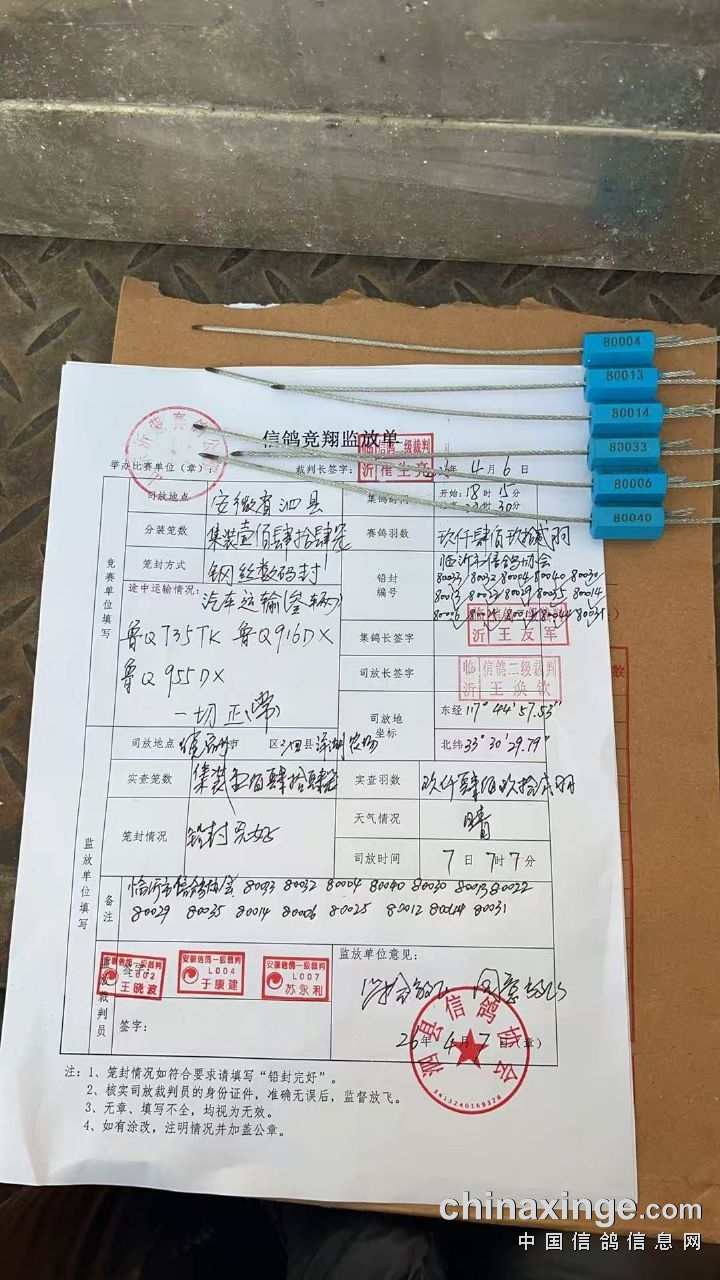 80004
80013
80014
80033
80006
80040
信鸽竞翔监放单
举办比赛单位（章）
裁判长签字：
信鸽二级裁判
年 4 月 6 日
竞赛单位填写
司放地点 安徽省泗县
集鸽时间 开始：18时15分
30分
分装笼数 集装壹佰肆拾肆笼
赛鸽羽数 玖仟肆佰玖拾贰羽
笼封方式 钢丝数码封
铅封编号 临沂市信鸽协会
80033 80032 80004 80040 80030
80013 80022 80029 80035 80014
80006 80025 80012 80044 80031
途中运输情况：
汽车运输(叁辆)
鲁Q735TK 鲁Q916DX
鲁Q955DX
一切正常
集鸽长签字
临沂 信鸽二级裁判 王友军
司放长签字
临沂 信鸽二级裁判 王焕钦
司放地坐标
东经 117° 44′57.53″
北纬 33° 30′29.79″
监放单位填写
司放地点 市 区泗县 农场
实查笼数 集装壹佰肆拾肆笼
实查羽数 玖仟肆佰玖拾贰羽
笼封情况 铅封完好
天气情况 晴
司放时间 7日 7时7分
备注
临沂市信鸽协会 80033 80032 80004 80040 80030 80013 80022
80029 80035 80014 80006 80025 80012 80044 80031
监放裁判员
安徽信鸽一级裁判 L002 王晓波
安徽信鸽一级裁判 L004 于康建
安徽信鸽一级裁判 L007 苏永利
签字：
监放单位意见：
同意放飞
26年 4月 7日（章）
泗县信鸽协会
3413240169328
注：1、笼封情况如符合要求请填写“铅封完好”。
2、核实司放裁判员的身份证件，准确无误后，监督放飞。
3、无章、填写不全，均视为无效。
4、如有涂改，注明情况并加盖公章。
chinaxinge.com
中国信鸽信息网